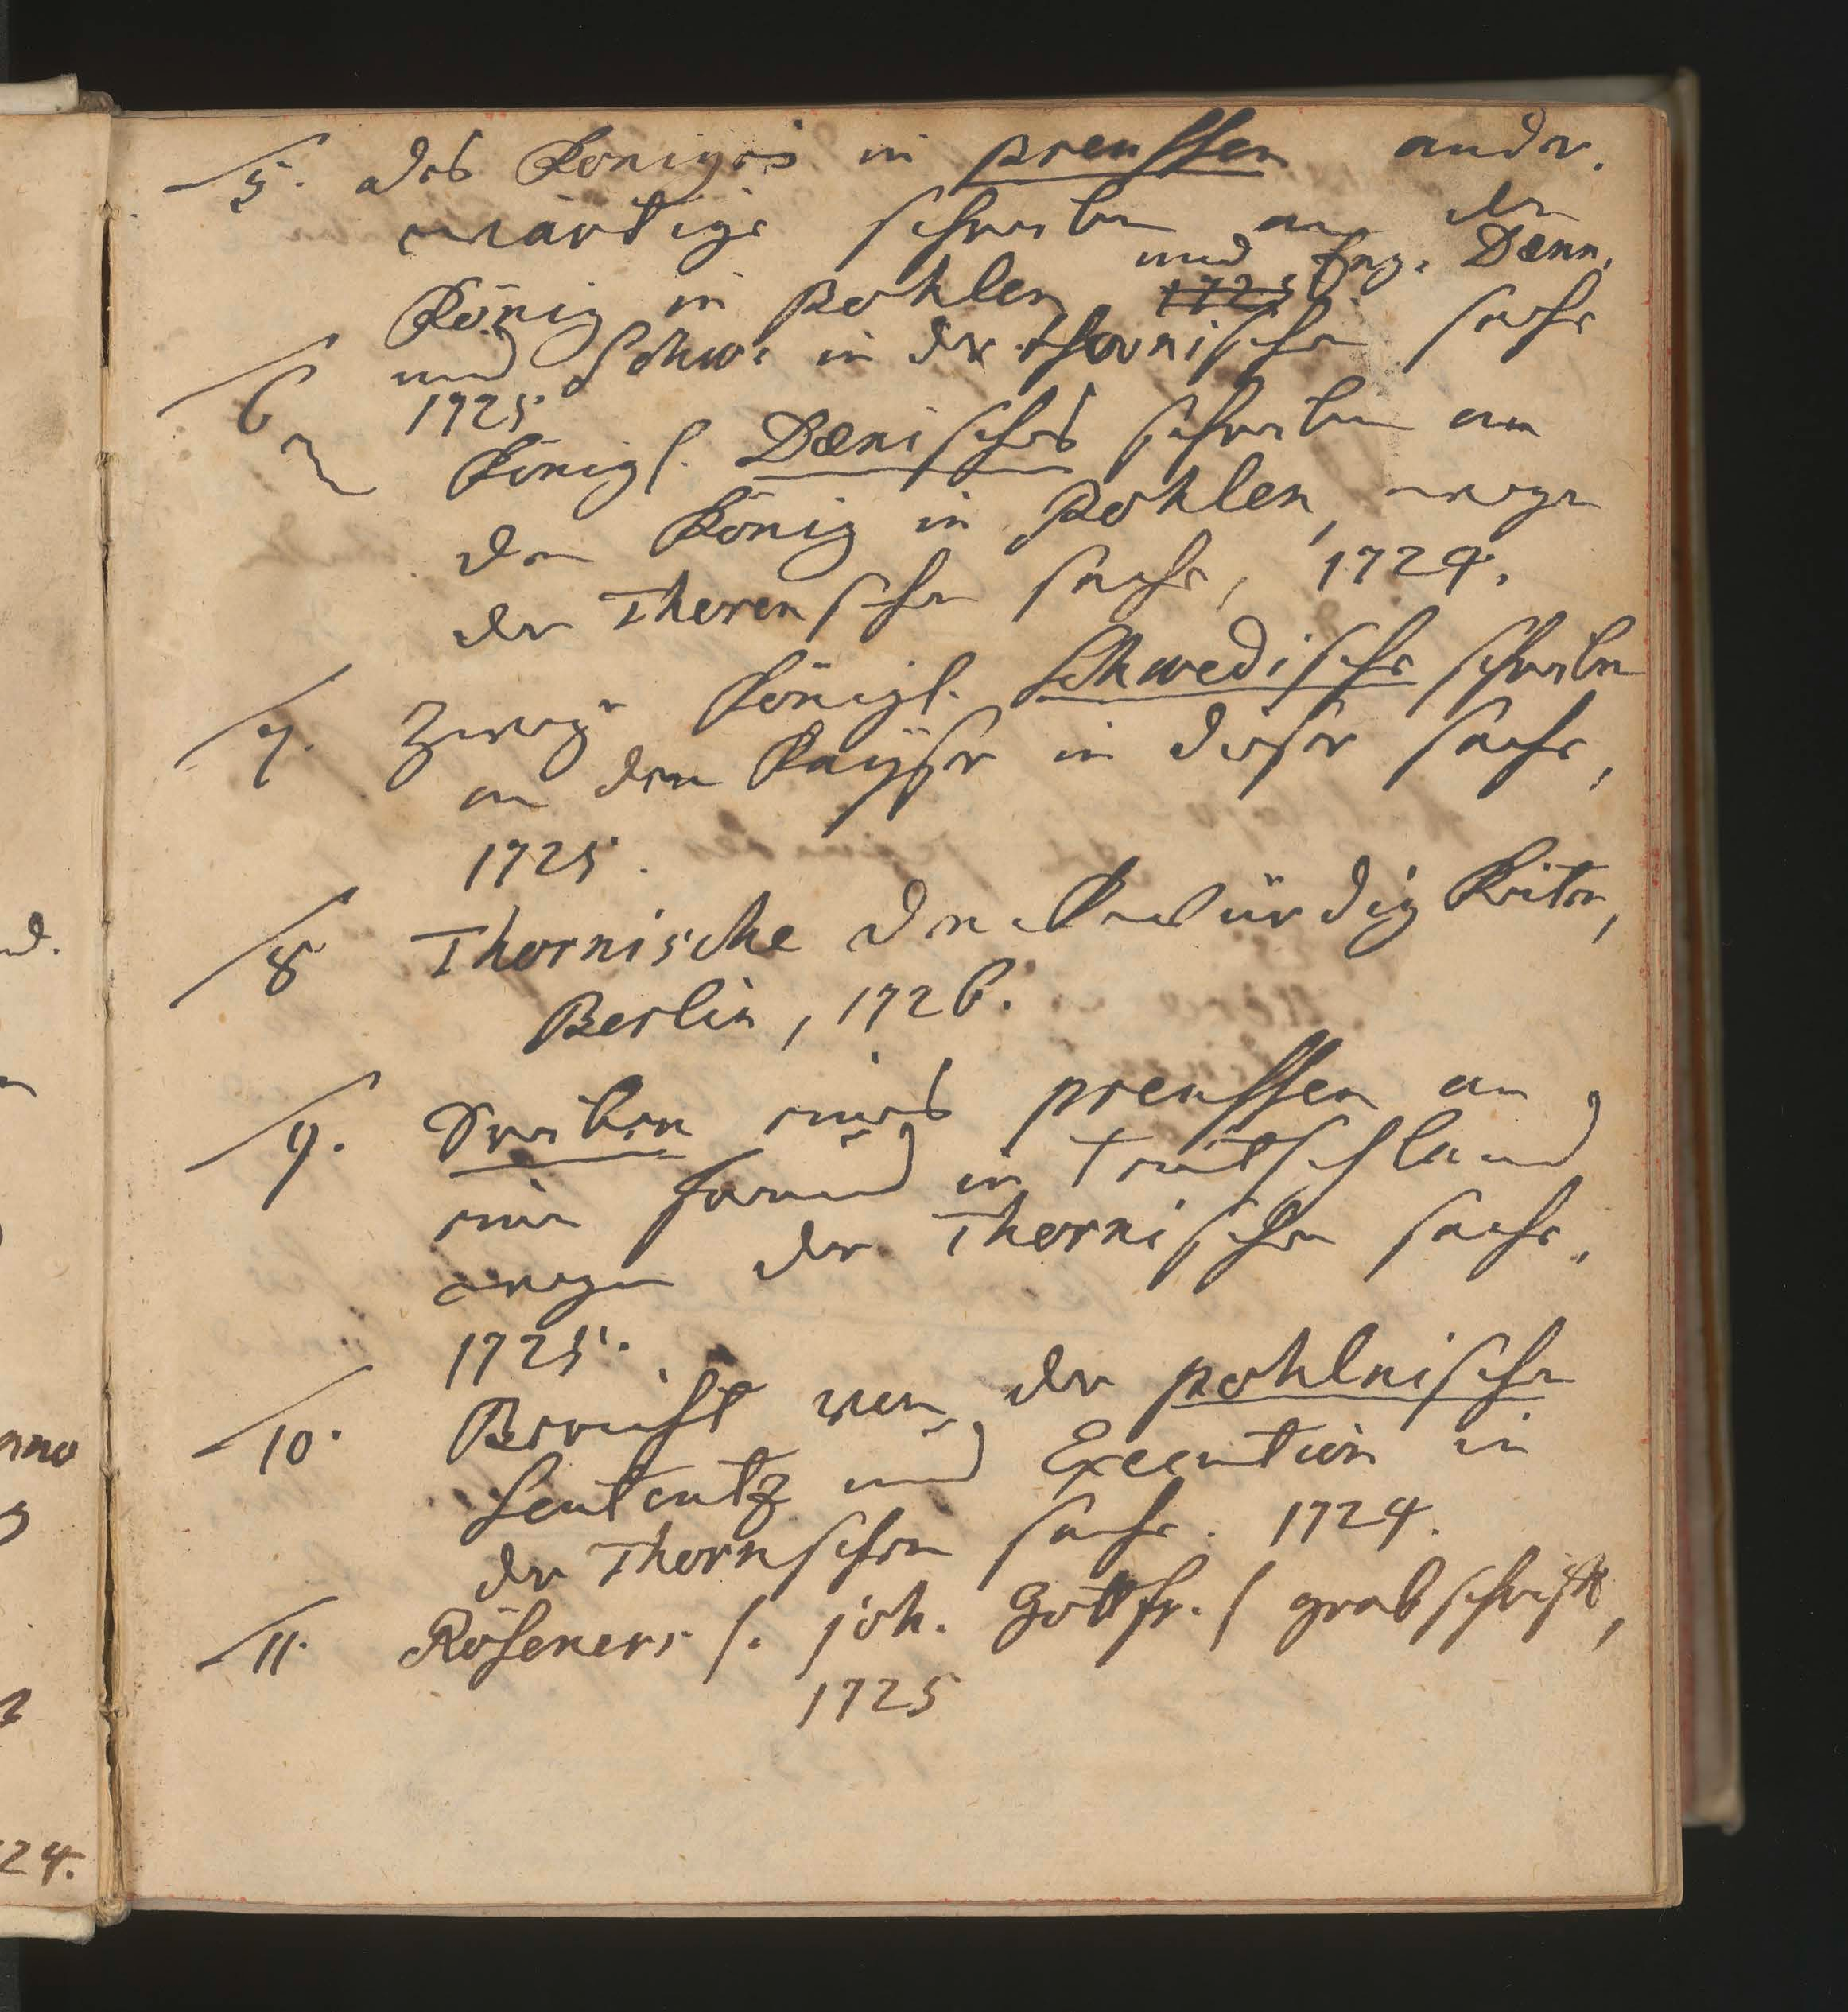 5. des Königes in preussen ander-
wärtige schreiben an den
König in Pohlen 1725 und Eng. Dænn.
und Schw: in der thornischen sache
1725.
6 Königl. Dænisches schreiben an
den König in Pohlen, wegen
der Thorenschen sache, 1724.
7. Zweye Königl. Schwedische schreiben
an den Kayser in dieser sache,
1725.
8 Thornische denckwürdigkeiten,
Berlin, 1726.
9. eines preussen an
einen freund in Teutschland
wegen der Thornischen sache.
1725.
10. Bericht von der pohlnischen
Sententz und Execution in
der Thornschen sache. 1724.
11. Röseners /. joh. Gottfr. / grabschrifft,
1725
nd.
nno
24.